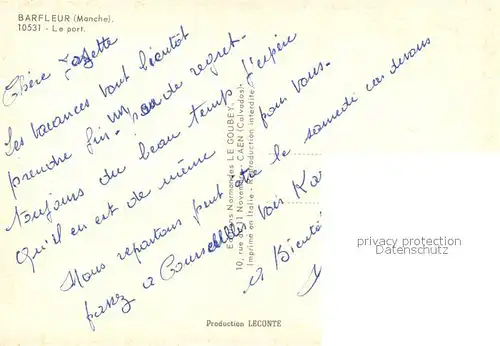 BARFLEUR (Manche).
10531 - Le port.
Chère
Les vacances vont bientôt
prendre fin - un peu de regret -
toujours du beau temps J'espère
qu'il en est de même pour vous -
Nous repartons peut être le samedi
passez à voir
et Bientôt
Editions Normandes LE GOUBEY
10, rue du 11 Novembre - CAEN (Calvados)
Imprimé en Italie - Reproduction interdite
privacy protection
Datenschutz
Production LECONTE